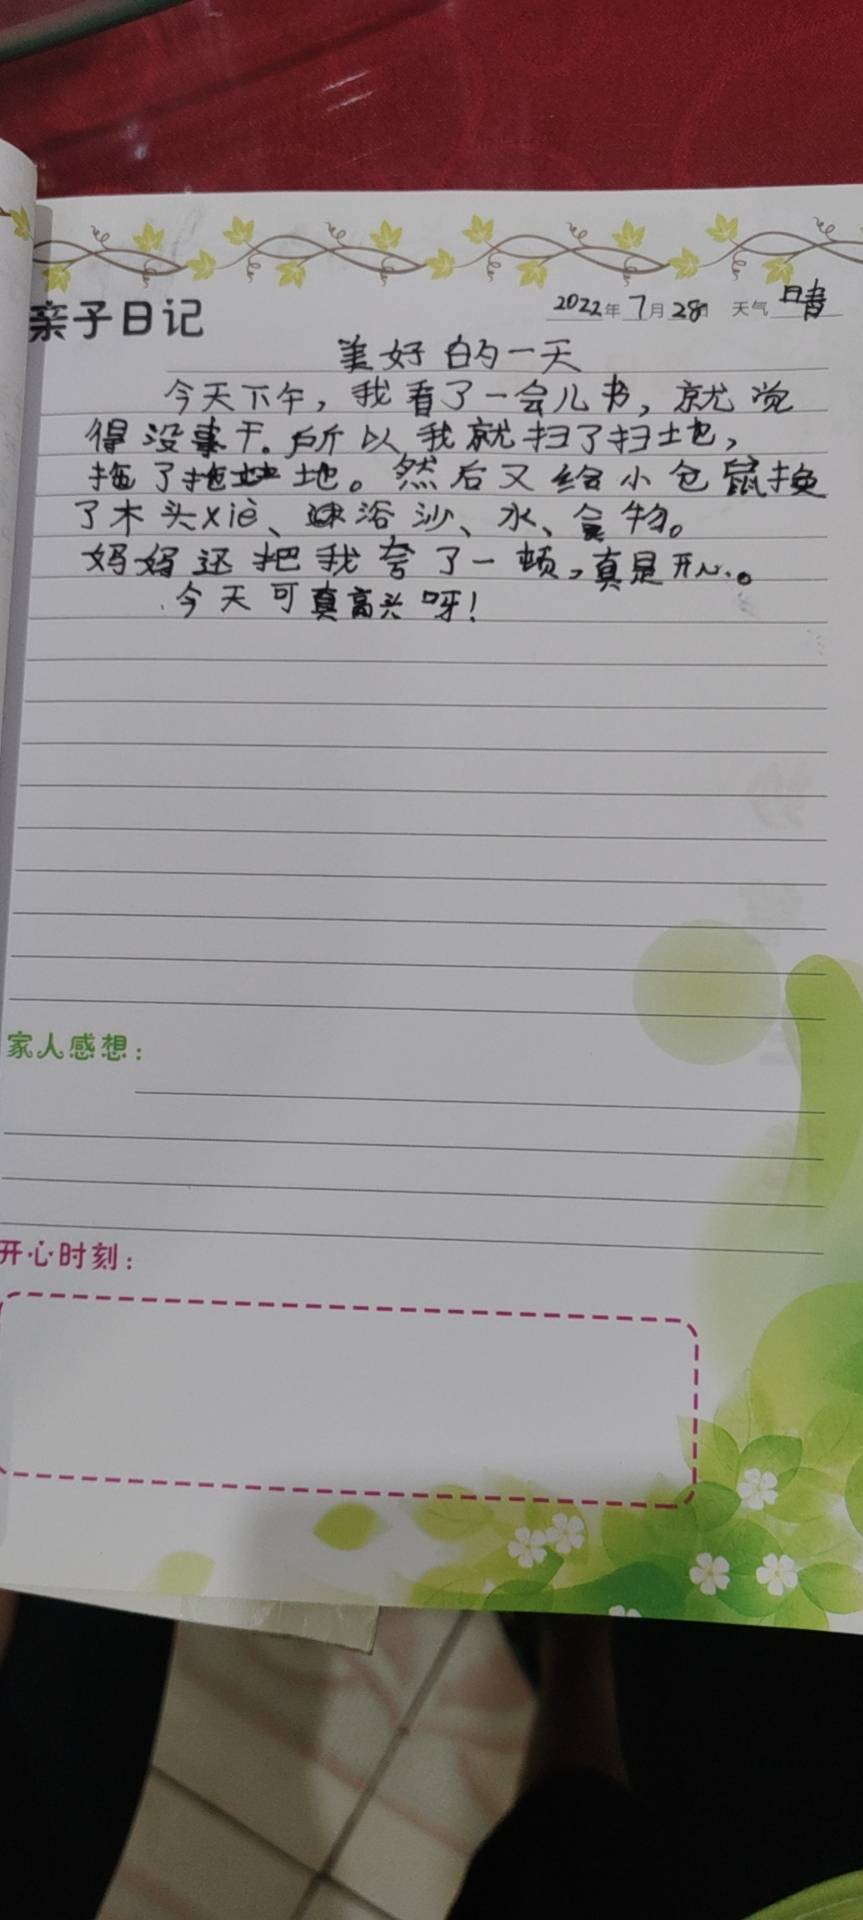 亲子日记 2022年7月28日 天气晴
美好的一天
今天下午，我看了一会儿书，就觉
得没事干。所以我就扫了扫地，
拖了拖地。然后又给小仓鼠换
了木头xiè、淋浴沙、水、食物。
妈妈还把我夸了一顿，真是开心。
今天可真高兴呀！
家人感想：
开心时刻：